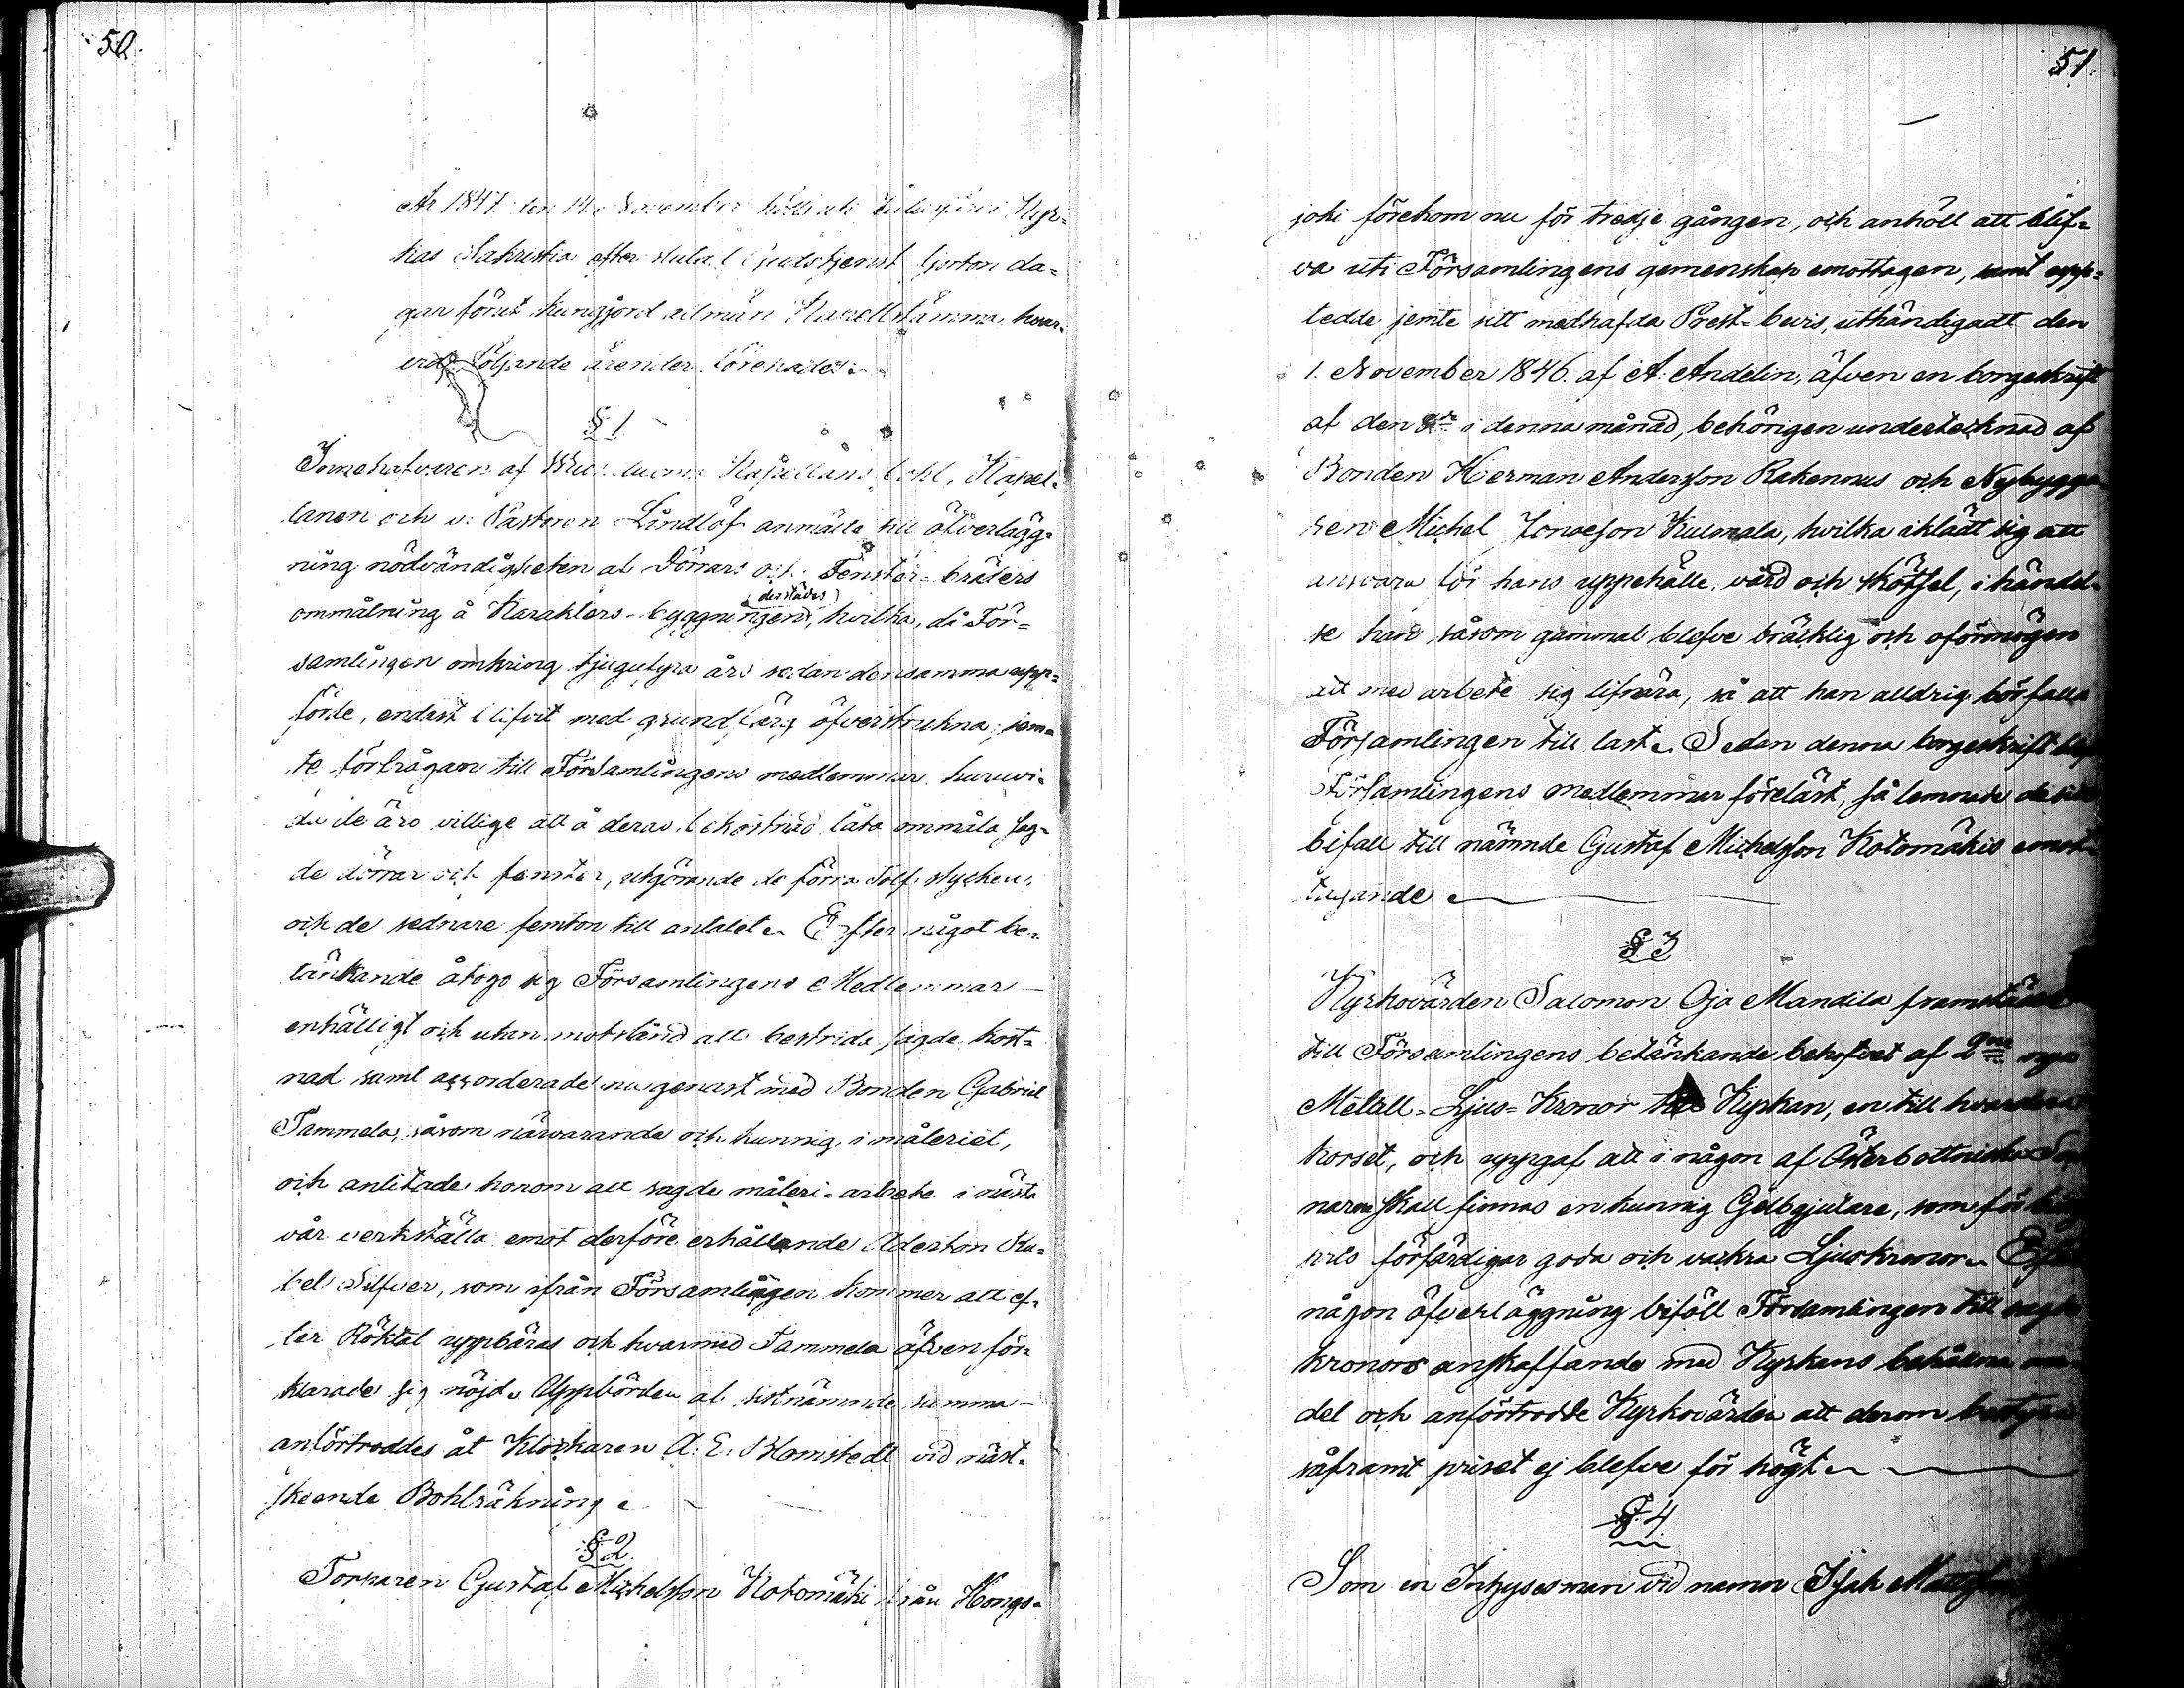 50.
År 1847 den 14 November hölls uti Kyr-
kas Sakristia efter slutad Gudstjenst fjorton da-
gar förut kungjord allmän Kapellstämma, hvar-
vid följande ärender förehades:
§ 1
Innehafvaren af Kapellans bohl, Kapel-
lanen och v: Pastoren Lindlöf anmälte till öfverlägg-
ning nödvändigheten af Dörrars och Fenster-bräders
ommålning å Karakters-byggningen derstädes, hvilka, då För-
samlingen omkring tjugufyra år sedan densamma upp-
förde, endast blifvit med grundfärg öfverstrukna; jem-
te förfrågan till Församlingens medlemmar huruvi-
da de äro villige att å deras bekostnad låta ommåla sag-
de dörrar och fenster, utgörande de förra Tolf stycken,
och de sednare femton till antalet. Efter något be-
tänkande åtogo sig Församlingens Medlemmar
enhälligt och utan motstånd att bestrida sagde kost-
nad samt accorderade nu genast med Bonden Gabriel
Tammela, såsom närvarande och kunnig i måleriet,
och anlitade honom att sagde måleri-arbete i nästa
vår verkställa emot derföre erhållande Aderton Ru-
bel Silfver, som ifrån Församlingen kommer att ef-
ter Röktal uppbäras och hvarmed Tammela äfven för-
klarade sig nöjd. Uppbörden af sistnämnde summa
anförtroddes åt Klockaren A. E. Blomstedt vid näst-
skeende Bohlräkning.
§ 2.
Torparen Gustaf Michelsson Kotomäki från Kongs-
51.
joki förekom nu för tredje gången, och anhöll att blif-
va uti Församlingens gemenskap emottagen, samt upp-
tedde jemte sitt medhafda Prest-bevis, uthändigadt den
1. November 1846. af A. Andelin, äfven en borgeskrift
af den i denna månad, behörigen undertecknad af
Bonden Herman Andersson Rakennus och Nybygga-
ren Michel Jonasson Kulmala, hvilka iklädt sig att
ansvara för hans uppehälle, vård och skötsel, i händel-
se han såsom gammal blefve bräcklig och oförmögen
att med arbete sig lifnära, så att han alldrig bör falla
Församlingen till last. Sedan denna borgeskrift blef
Församlingens medlemmar föreläst, så lemnade de sitt
bifall till nämnde Gustaf Michelsson Kotomäkis emot-
tagande.
§ 3
Kyrkovärden Salomon Oja Mandila framställde
till Församlingens betänkande behofvet af 2ne nya
Metall-Ljus-Kronor till Kyrkan, en till hvardera
korset, och uppgaf att i någon af Österbottniska
narne skall finnas en kunnig Gelbgjutare, som för
pris förfärdigar goda och vackra Ljuskronor. Efter
någon öfverläggning biföll Församlingen till sagde
kronors anskaffande med Kyrkans behållna me-
del och anförtrodde Kyrkovärden att derom bestyra
såframt priset ej blefve för högt.
§ 4
Som en Inhysesman vid namn Isak